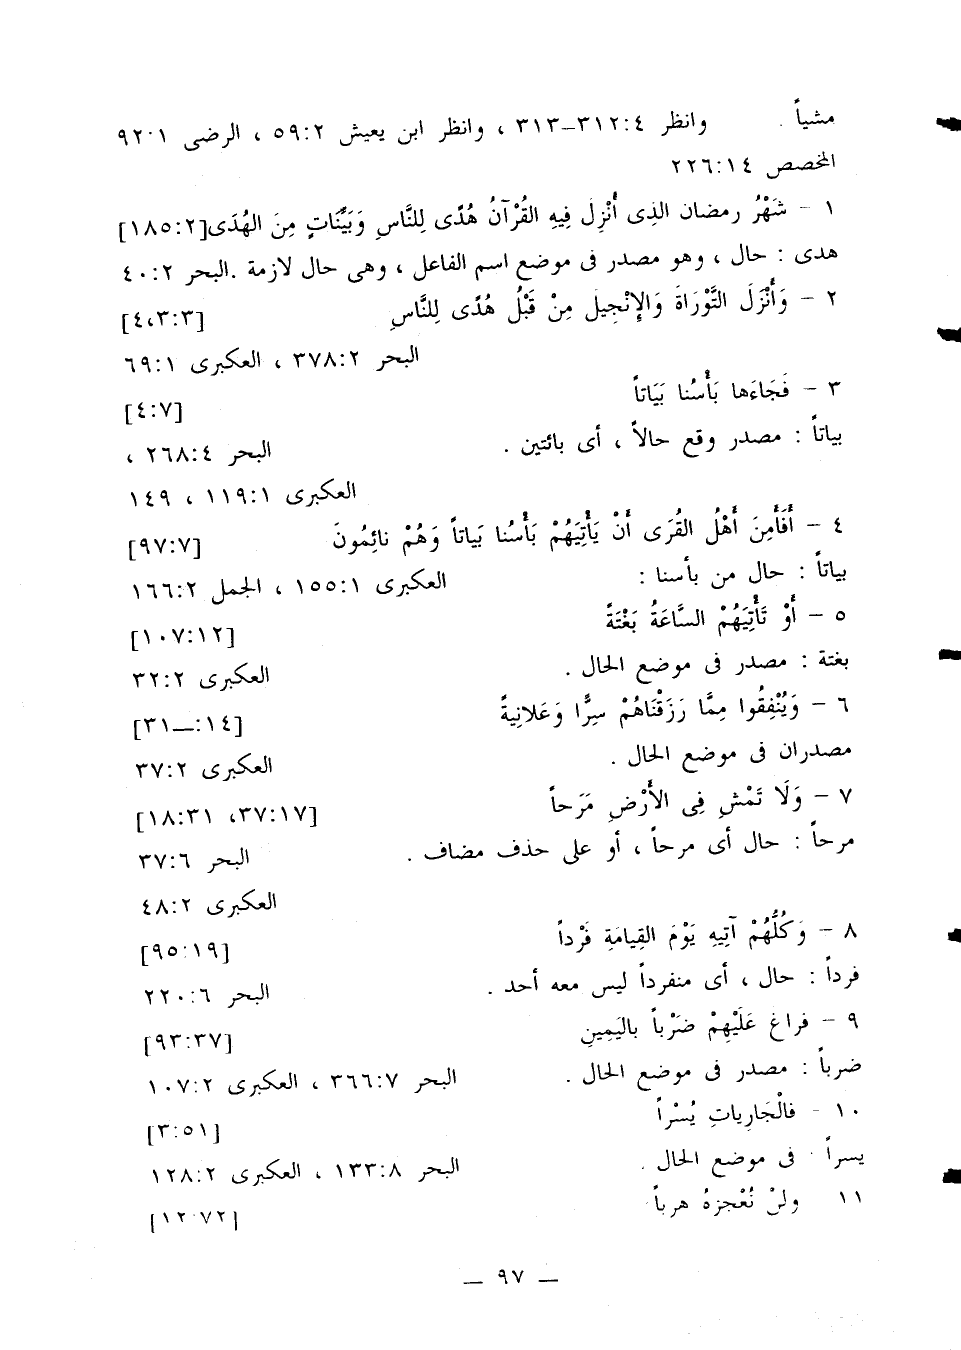 مشياً . وانظر ٤:٣١٢–٣١٣ ، وانظر ابن يعيش ٢:٥٩ ، الرضى ١٠٩٢
المخصص ١٤:٢٢٦
١ – شَهْرُ رمضان الذِى أُنْزِلَ فِيهِ القُرْآنُ هُدًى لِلنَّاسِ وَبَيِّنَاتٍ مِنَ الهُدَى [٢:١٨٥]
هدى : حال ، وهو مصدر فى موضع اسم الفاعل ، وهى حال لازمة .البحر ٢:٤٠
٢ – وَأَنْزَلَ التَّوْرَاةَ وَالإِنْجِيلَ مِنْ قَبْلُ هُدًى لِلنَّاسِ [٣:٣،٤]
البحر ٢:٣٧٨ ، العكبرى ١:٦٩
٣ – فَجَاءَها بَأْسُنا بَيَاتاً [٧:٤]
بياتاً : مصدر وقع حالاً ، أى بائتين . البحر ٤:٢٦٨ ،
العكبرى ١:١١٩ ، ١٤٩
٤ – أَفَأَمِنَ أَهْلُ القُرَى أَنْ يَأْتِيَهُمْ بَأْسُنا بَياتاً وَهُمْ نائِمُونَ [٧:٩٧]
بياتاً : حال من بأسنا : العكبرى ١:١٥٥ ، الجمل ٢:١٦٦
٥ – أَوْ تَأْتِيَهُمْ السَّاعَةُ بَغْتَةً [١٢:١٠٧]
بغتة : مصدر فى موضع الحال . العكبرى ٢:٣٢
٦ – وَيُنْفِقُوا مِمَّا رَزَقْنَاهُمْ سِرًّا وَعَلانِيةً [١٤:—٣١]
مصدران فى موضع الحال . العكبرى ٢:٣٧
٧ – وَلَا تَمْشِ فِى الأَرْضِ مَرَحاً [١٧:٣٧، ٣١:١٨]
مرحاً : حال أى مرحاً ، أو على حذف مضاف . البحر ٦:٣٧
العكبرى ٢:٤٨
٨ – وَكُلُّهُمْ آتِيهِ يَوْمَ القِيامَةِ فَرْداً [١٩:٩٥]
فرداً : حال ، أى منفرداً ليس معه أحد . البحر ٦:٢٢٠
٩ – فراغ عَلَيْهِمْ ضَرْباً باليَمِينِ [٣٧:٩٣]
ضرباً : مصدر فى موضع الحال . البحر ٧:٣٦٦ ، العكبرى ٢:١٠٧
١٠ – فالْجَارِياتِ يُسْراً [٥١:٣]
يسراً فى موضع الحال . البحر ٨:١٣٣ ، العكبرى ٢:١٢٨
١١ ولنْ نُعْجزهُ هرباً [٧٢ ١٢]
— ٩٧ —